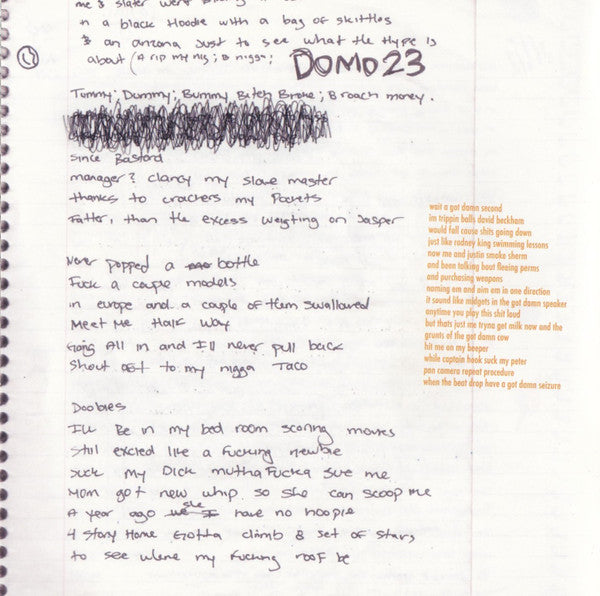 me & slater went
in a black Hoodie with a bag of skittles
& an arizona Just to see what the Hype is
about (A rip my nig; B nigga;
DOMO23
Tummy; Dummy; Bummy Bitch Broke; B roach money.
since Bastard
manager? clancy my slave master
thanks to crackers my Pockets
Fatter, than the excess weighting on Jasper
Never popped a bottle
Fuck a couple models
in europe and a couple of them swallowed
Meet Me Half Way
Going All in and I'll never pull back
Shout out to my nigga Taco
Doobies
I'll Be in my bed room scoring movies
Still excied like a Fucking newbie
Suck my Dick mutha Fucka sue me
Mom got new whip so she can scoop me
A year ago she have no hooptie
4 Story Home Gotta climb 8 set of stars
to see where my Fucking roof be
wait a got damn second
im trippin balls david beckham
would fall cause shits going down
just like rodney king swimming lessons
now me and justin smoke sherm
and been talking bout fleeing perms
and purchasing weapons
naming em and aim em in one direction
it sound like midgets in the got damn speaker
anytime you play this shit loud
but thats just me tryna get milk now and the
grunts of the got damn cow
hit me on my beeper
while captain hook suck my peter
pan camera repeat procedure
when the beat drop have a got damn seizure